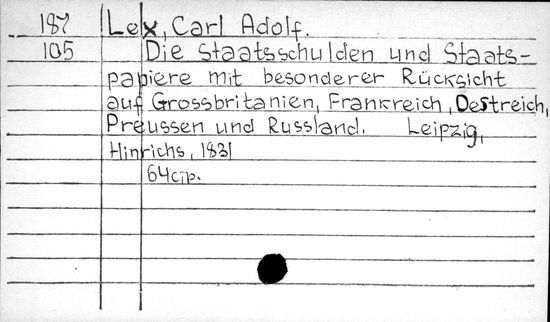 187 Lex, Carl Adolf.
105 Die Staatsschulden und Staats-
papiere mit besonderer Rücksicht
auf Grossbritanien, Frankreich, Oestreich,
Preussen und Russland. Leipzig,
Hinrichs, 1831
64 c.p.